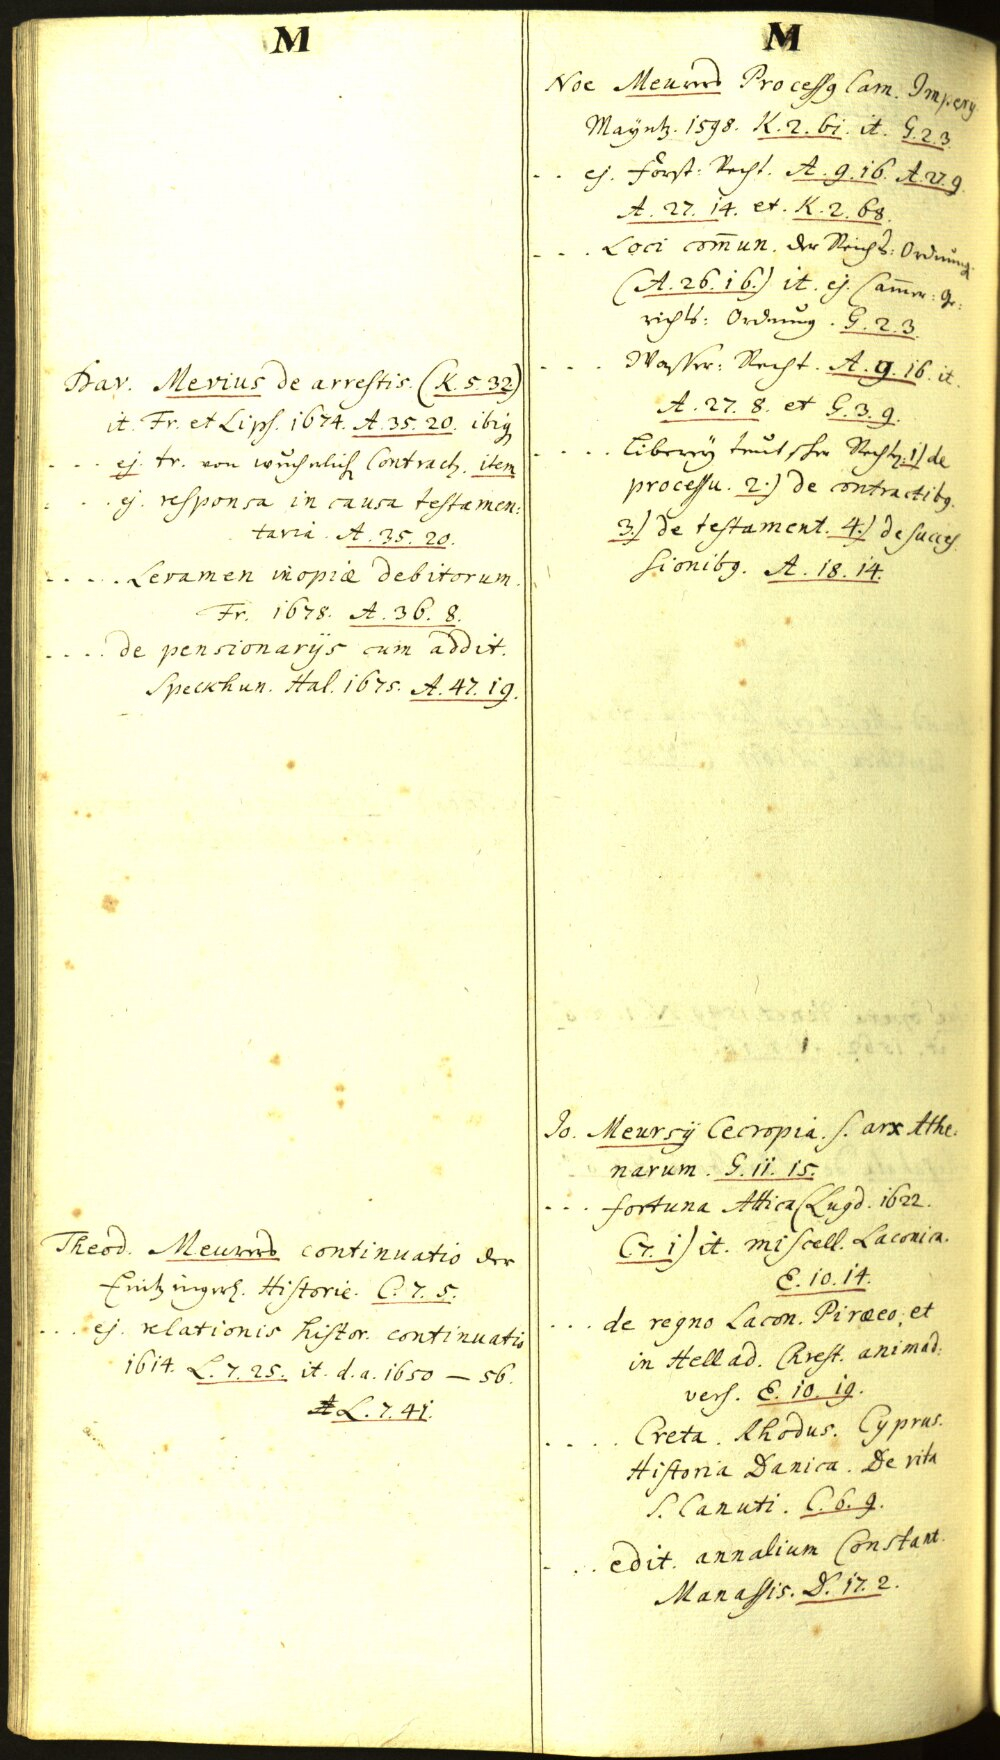 M
Dav. Mevius de arrestis. (K. 5. 32)
it. Fr. et Lips. 1674. A. 35. 20. ibiq
- - - ej. tr. von wucherlich Contract. item
- - - ej. responsa in causa testamen:
taria. A. 35. 20.
- - - - - Levamen inopiæ debitorum.
Fr. 1678. A. 36. 8.
- - - - de pensionarijs cum addit.
Speckhun. Hal. 1675. A. 47. 19.
Theod. Meurers continuatio der
Historie. C. 7. 5.
- - - ej. relationis histor. continuatio
1614. L. 7. 25. it. d. a. 1650 — 56.
L. 7. 41.
M
Noe Meurers Processq Cam. Impery
Mayntz. 1598. K. 2. 61. it. G. 2. 3.
- - ej. Forst: Recht. A. 9. 16. A. 27. 9.
A. 27. 14. et. K. 2. 68.
- - - - Loci com̄un. der Reichs: Ordnung.
(A. 26. 16.) it. ej. Cam̄er: Ge:
richts: Ordnung. G. 2. 3.
- - - - Wasser: Recht. A. 9. 16 it.
A. 27. 8. et G. 3. 9.
- - - - Liberey teutscher Rechtē. 1.) de
processu. 2.) de contractibq.
3.) de testament. 4.) de succes
sionibq. A. 18. 14.
Jo. Meursij Cecropia. s. arx Athe:
narum. G. 11. 15.
- - - fortuna Attica (Lugd. 1622.
G. 7. 1) it. miscell. Laconica.
E. 10. 14.
- - - de regno Lacon. Piræeo, et
in Hellad. Chrest. animad:
vers. E. 10. 19.
- - - - Creta. Rhodus. Cyprus.
Historia Danica. De vita
S. Canuti. C. 6. 9.
- - - edit. annalium Constant.
Manassis. D. 17. 2.